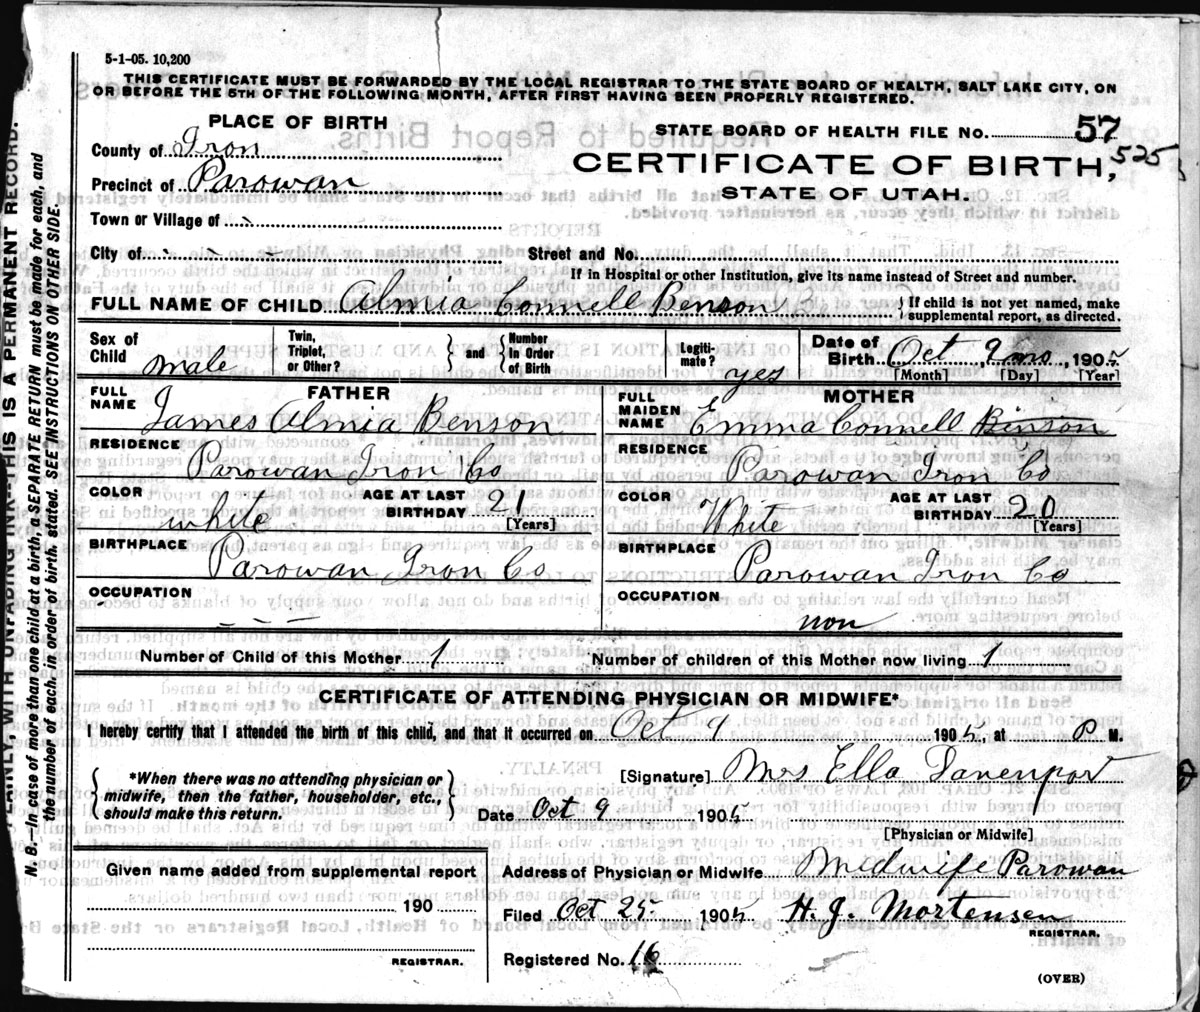 5-1-05. 10,200
THIS CERTIFICATE MUST BE FORWARDED BY THE LOCAL REGISTRAR TO THE STATE BOARD OF HEALTH, SALT LAKE CITY, ON
OR BEFORE THE 5TH OF THE FOLLOWING MONTH, AFTER FIRST HAVING BEEN PROPERLY REGISTERED.
PLACE OF BIRTH
County of Iron
Precinct of Parowan
Town or Village of
City of
STATE BOARD OF HEALTH FILE NO. 57
525
CERTIFICATE OF BIRTH,
STATE OF UTAH.
Street and No.
If in Hospital or other Institution, give its name instead of Street and number.
FULL NAME OF CHILD Almia Connell Benson
{ If child is not yet named, make
supplemental report, as directed.
Sex of
Child male
Twin,
Triplet,
or Other?
} and {
Number
in Order
of Birth
Legiti-
mate? yes
Date of
Birth Oct 9 1905
[Month] [Day] [Year]
FATHER
FULL
NAME James Almia Benson
RESIDENCE
Parowan Iron Co
COLOR
white
AGE AT LAST
BIRTHDAY 21
[Years]
BIRTHPLACE
Parowan Iron Co
OCCUPATION
- - -
MOTHER
FULL
MAIDEN
NAME Emma Connell Binson
RESIDENCE
Parowan Iron Co
COLOR
White
AGE AT LAST
BIRTHDAY 20
[Years]
BIRTHPLACE
Parowan Iron Co
OCCUPATION
non
Number of Child of this Mother 1
Number of children of this Mother now living 1
CERTIFICATE OF ATTENDING PHYSICIAN OR MIDWIFE*
I hereby certify that I attended the birth of this child, and that it occurred on Oct 9 1905, at P M.
{ *When there was no attending physician or
midwife, then the father, householder, etc.,
should make this return. }
[Signature] Mrs Ella Davenport
Date Oct 9 1905
[Physician or Midwife]
Given name added from supplemental report
190
REGISTRAR.
Address of Physician or Midwife Midwife Parowan
Filed Oct 25 1905 H. J. Mortensen
REGISTRAR.
Registered No. 16
(OVER)
PLAINLY, WITH UNFADING INK--THIS IS A PERMANENT RECORD.
N. B.--In case of more than one child at a birth, a SEPARATE RETURN must be made for each, and
the number of each, in order of birth, stated. SEE INSTRUCTIONS ON OTHER SIDE.